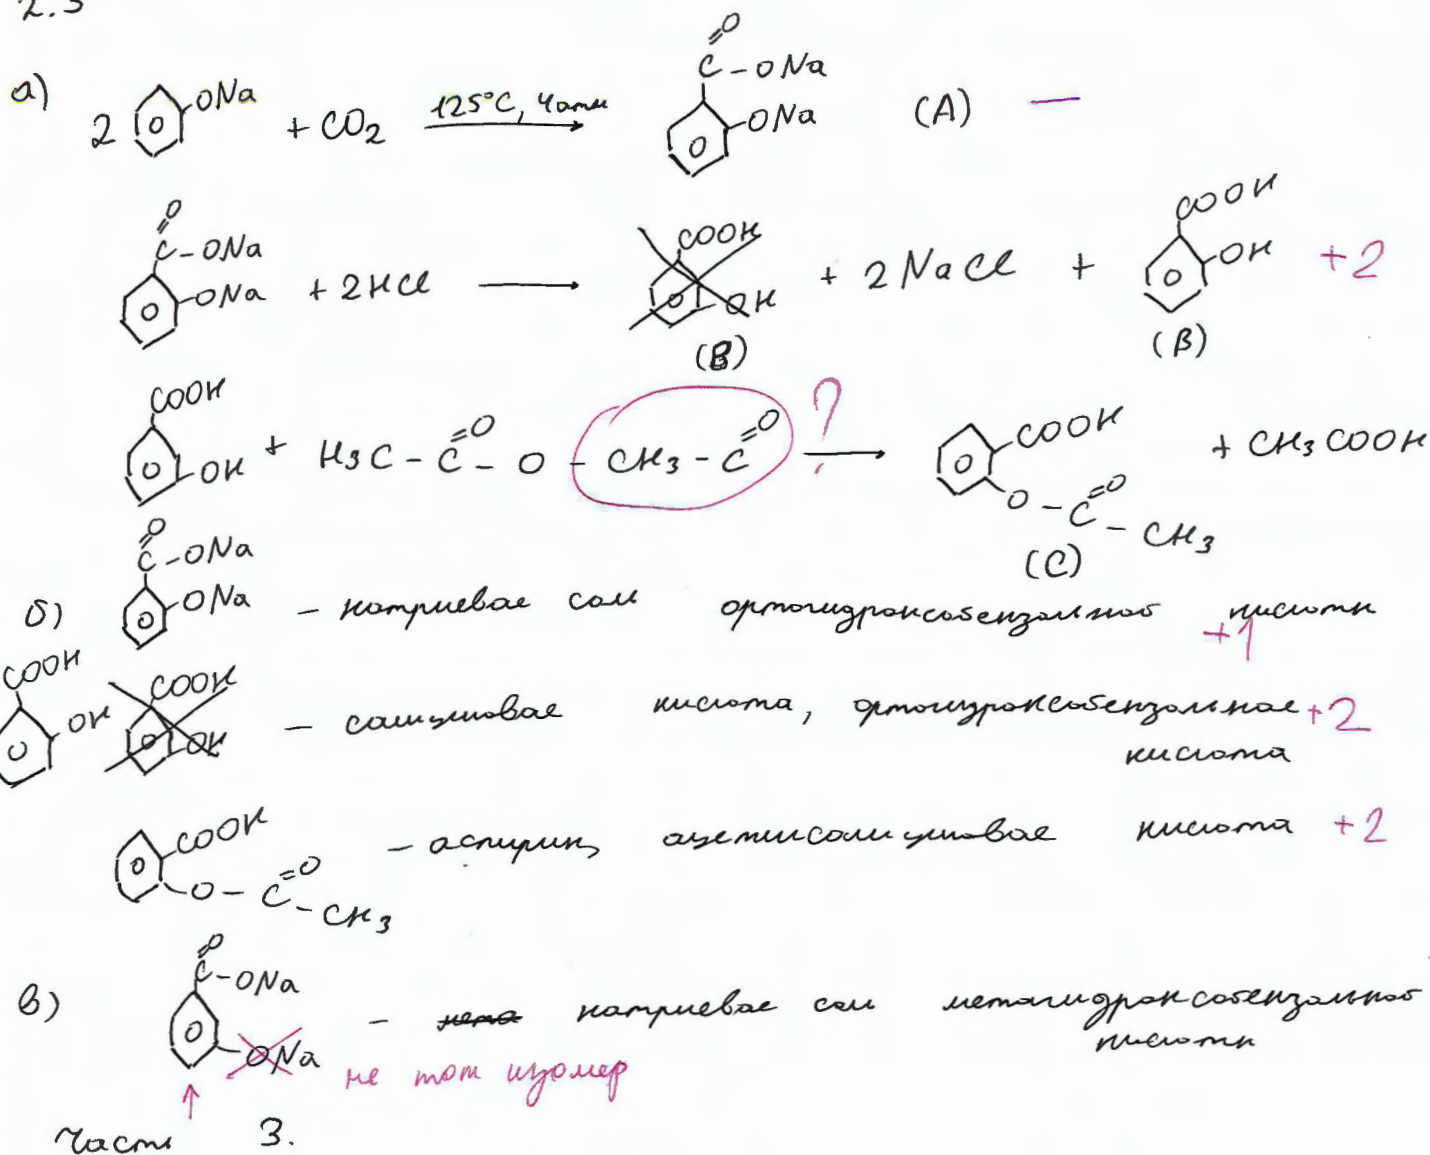 2.3
а) 2 ONa + CO2 125°C, 4 атм C=O - ONa ONa (A) —
C=O - ONa ONa + 2HCl → COOH OH (B) + 2NaCl + COOH OH (B) +2
COOH OH + H3C - C=O - O - CH3 - C=O ? → COOH O - C=O - CH3 (C) + CH3COOH
б) C=O - ONa ONa – натриевая соль ортогидроксобензольной кислоты +1
COOH OH COOH OH – салициловая кислота, ортогидроксобензольная +2
кислота
COOH O - C=O - CH3 – аспирин, ацетилсалициловая кислота +2
в) C=O - ONa ONa – мета натриевая соль метагидроксобензольной
кислоты
не тот изомер
Часть 3.